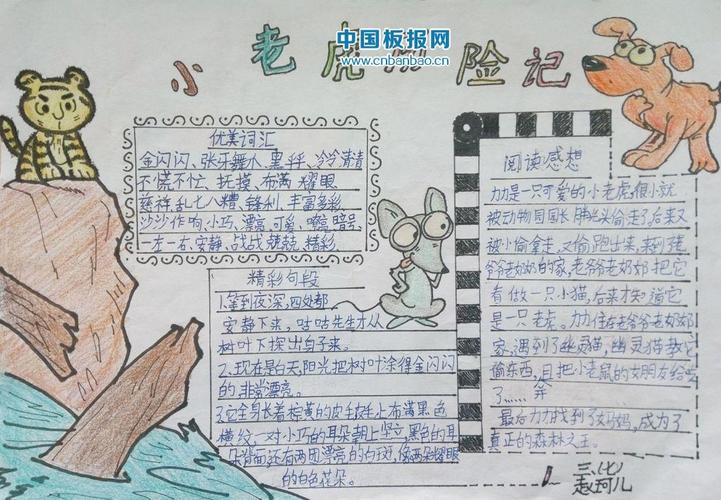 小老虎历险记
中国板报网
www.cnbanbao.cn
优美词汇
金闪闪、张牙舞爪、黑乎乎、冷冷清清
不慌不忙、抚摸、布满、耀眼、
慈祥、乱七八糟、锋利、丰富多彩、
沙沙作响、小巧、漂亮、可爱、暗号、
一左一右、安静、战战兢兢、精彩、
精彩句段
1.等到夜深,四处都
安静下来,咕咕先生才从
树叶下探出身子来。
2.现在是白天,阳光把树叶涂得金闪闪
的,非常漂亮。
3.它全身长着棕黄的皮毛,毛上布满黑色
横纹,一对小巧的耳朵朝上竖立,黑色的耳
朵背面还有两团漂亮的白斑,像两朵耀眼
的白色花朵。
阅读感想
力力是一只可爱的小老虎,很小就
被动物园园长偷走了,后来又
被小偷拿走,又偷跑出来,来到了老
爷爷老奶奶的家,老爷爷老奶奶把它
看做一只小猫,后来才知道它
是一只老虎。力力住在老爷爷老奶奶
家,遇到了幽灵猫,幽灵猫教它
偷东西,且把小老鼠的女朋友给弄
了……
最后力力找到了妈妈,成为了
真正的森林之王。
三、(七)
赵珂儿